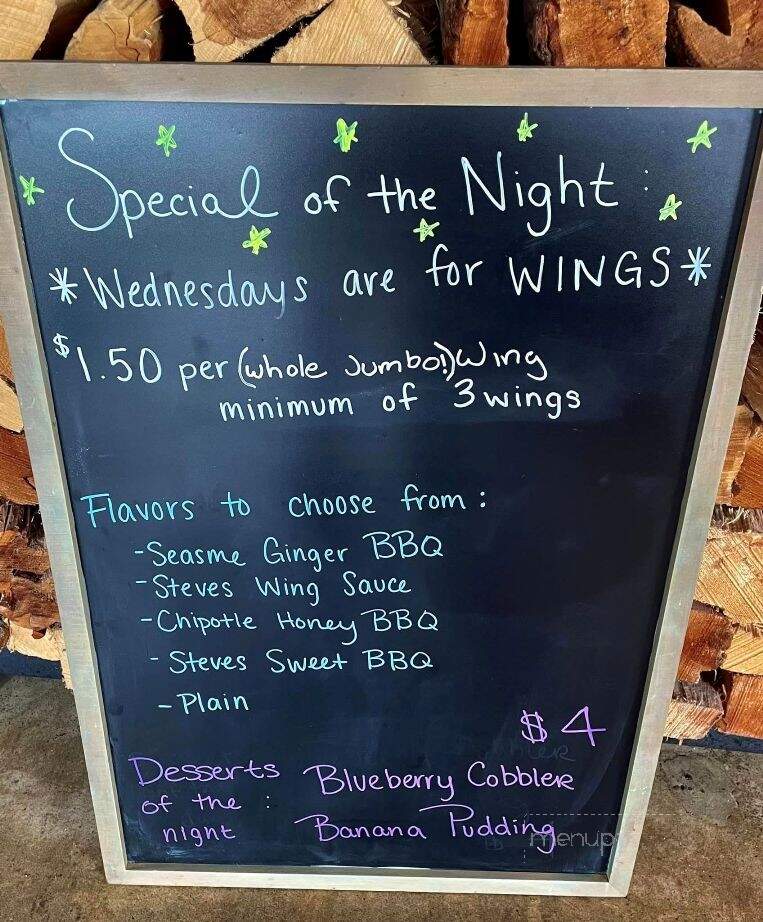 Special of the Night :
*Wednesdays are for WINGS*
$1.50 per (whole Jumbo!) Wing
minimum of 3 wings
Flavors to choose from :
- Seasme Ginger BBQ
- Steves Wing Sauce
- Chipotle Honey BBQ
- Steves Sweet BBQ
- Plain
$4
Desserts of the night : Blueberry Cobbler
Banana Pudding
menup